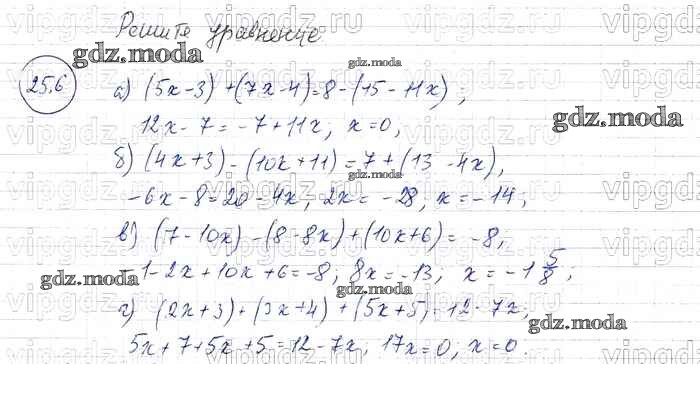 Решите уравнение
25.6
а) (5x-3)+(7x-4)=8-(15-11x);
12x-7=-7+11x; x=0,
б) (4x+3)-(10x+11)=7+(13-4x),
-6x-8=20-4x, 2x=-28, x=-14;
в) (7-10x)-(8-8x)+(10x+6)=-8,
-1-2x+10x+6=-8; 8x=-13; x=-1 5/8;
г) (2x+3)+(3x+4)+(5x+5)=12-7x,
5x+7+5x+5=12-7x, 17x=0; x=0.
gdz.moda
gdz.moda
gdz.moda
gdz.moda
gdz.moda
gdz.moda
gdz.moda
vipgdz.ru